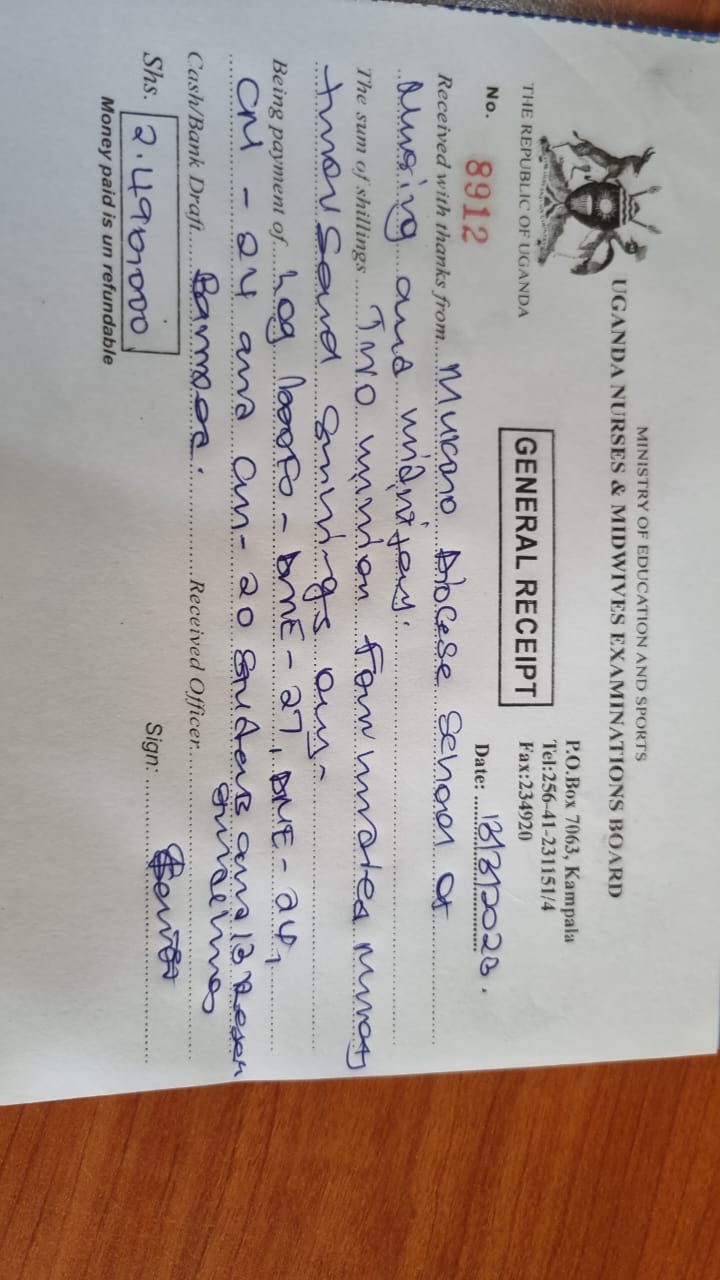 MINISTRY OF EDUCATION AND SPORTS
UGANDA NURSES & MIDWIVES EXAMINATIONS BOARD
P.O.Box 7063, Kampala
Tel:256-41-231151/4
Fax:234920
THE REPUBLIC OF UGANDA
GENERAL RECEIPT
No. 8912
Date:
Received with thanks from Diocese School of
Nursing and midwifery.
The sum of shillings Two million four hundred ninety
thousand shillings only-
Being payment of Log books - DME - 27, DNE - 24,
CM - 24 and CN- 20 students and 13
Cash/Bank Draft Received Officer
Shs. 2.490,000 Sign:
Money paid is un refundable